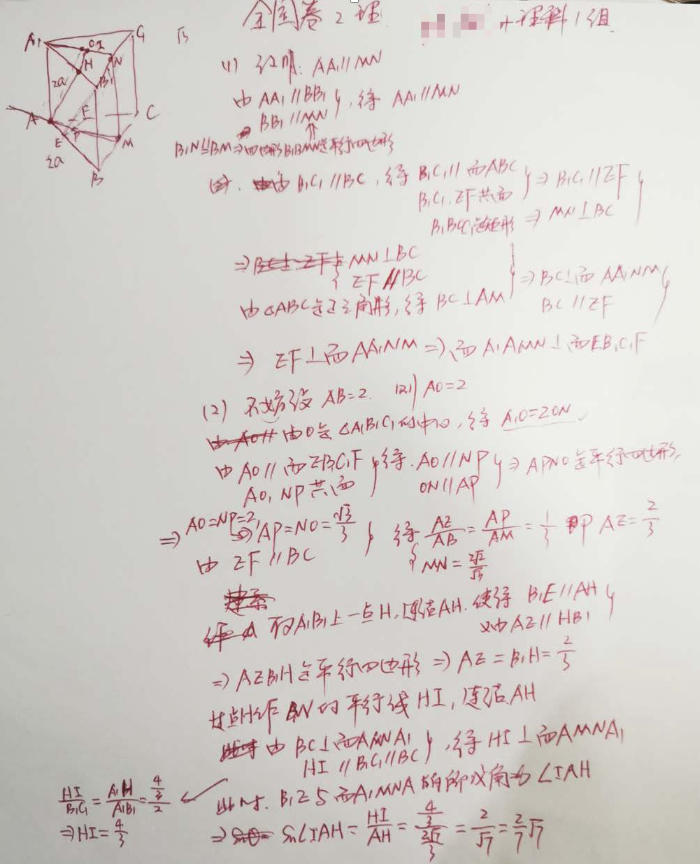 全国卷2理
理科1组
A₁ O₁ C₁
H N
B₁
2a
A E F P
C
M
2a
B
(1) 证明: AA₁∥MN
由 AA₁∥BB₁
BB₁∥MN } 得 AA₁∥MN
B₁N≌BM ⇒ 四边形B₁BMN是平行四边形
由 B₁C₁∥BC, 得 B₁C₁∥面ABC
B₁C₁, EF共面 } ⇒ B₁C₁∥EF
B₁BCC₁是矩形 ⇒ MN⊥BC
⇒ MN⊥BC
EF∥BC
由△ABC是正三角形, 得 BC⊥AM } ⇒ BC⊥面AA₁NM
BC∥EF
⇒ EF⊥面AA₁NM ⇒ 面A₁AMN⊥面EB₁C₁F
(2) 不妨设 AB=2. 则 AO=2
由O是△A₁B₁C₁的中心, 得 A₁O=2ON
由 AO∥面EB₁C₁F
AO, NP共面 } 得 AO∥NP
ON∥AP } ⇒ APNO是平行四边形,
⇒ AO=NP=2, AP=NO=√3/3
由 EF∥BC } 得 AE/AB=AP/AM=1/3 即 AE=2/3
取A₁B₁上一点H, 连结AH. 使得 B₁E∥AH
又由AE∥HB₁
⇒ AEB₁H是平行四边形 ⇒ AE=B₁H=2/3
过点H作B₁N的平行线HI, 连结AH
由 BC⊥面AMNA₁
HI∥B₁C₁∥BC } 得 HI⊥面AMNA₁
HI/B₁C₁=A₁H/A₁B₁=(4/3)/2
⇒ HI=4/3
此时. B₁E与面A₁MNA的所成角为∠IAH